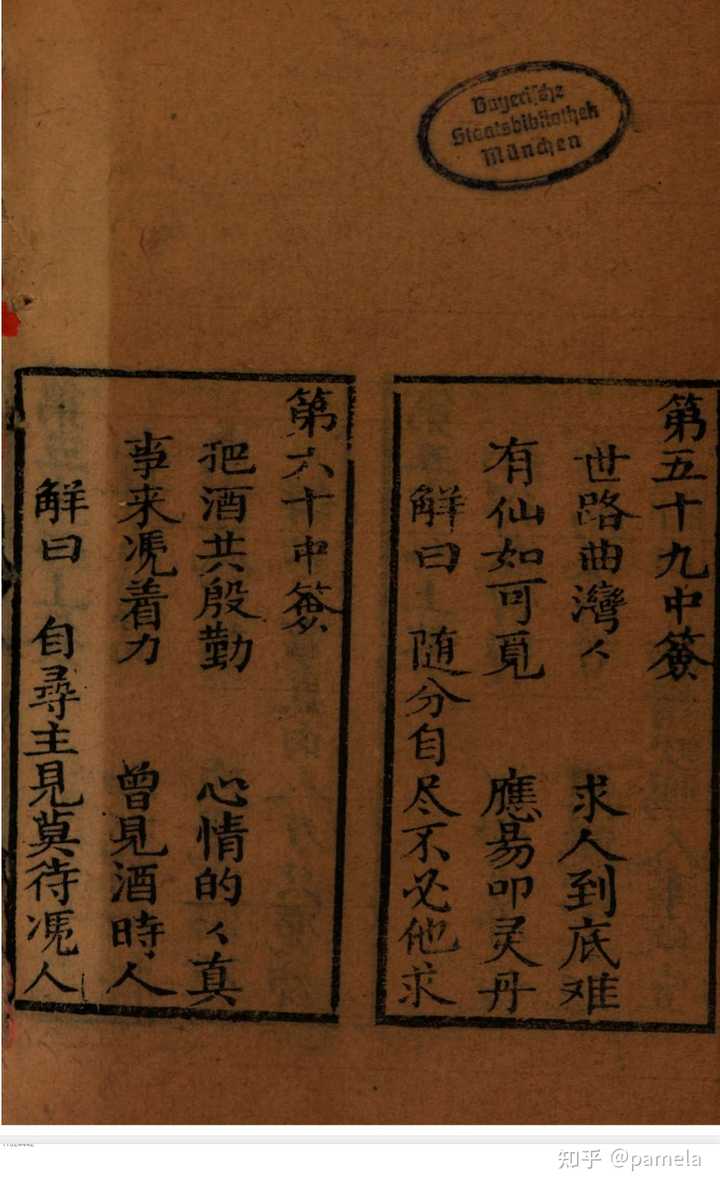 Bayerische
Staatsbibliothek
München
第五十九中簽
世路曲灣〻 求人到底难
有仙如可覓 應昜叩灵丹
解曰 随分自尽不必他求
第六十中簽
把酒共殷勤 心情的〻真
事来凴着力 曾見酒時人
解曰 自尋主見莫待凴人
知乎 @pamela